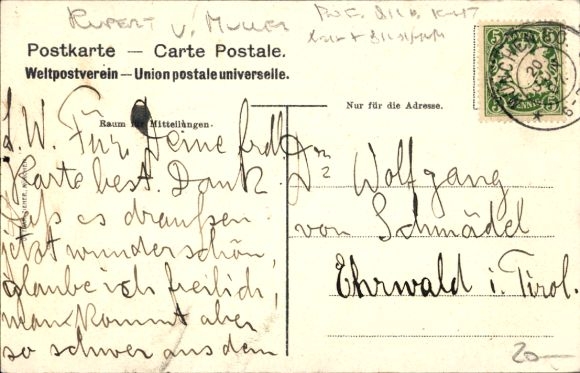 RUPERT V. MULLER
Postkarte — Carte Postale.
Weltpostverein — Union postale universelle.
Raum für Mitteilungen.
Nur für die Adresse.
5 5
MÜNCHEN
20
L. W. Für Deine frdl.
Karte best. Dank.
Daß es draußen
jetzt wunderschön,
glaube ich freilich,
man kommt aber
so schwer aus dem
Wolfgang
von Schmädel
Ehrwald i. Tirol.
20—